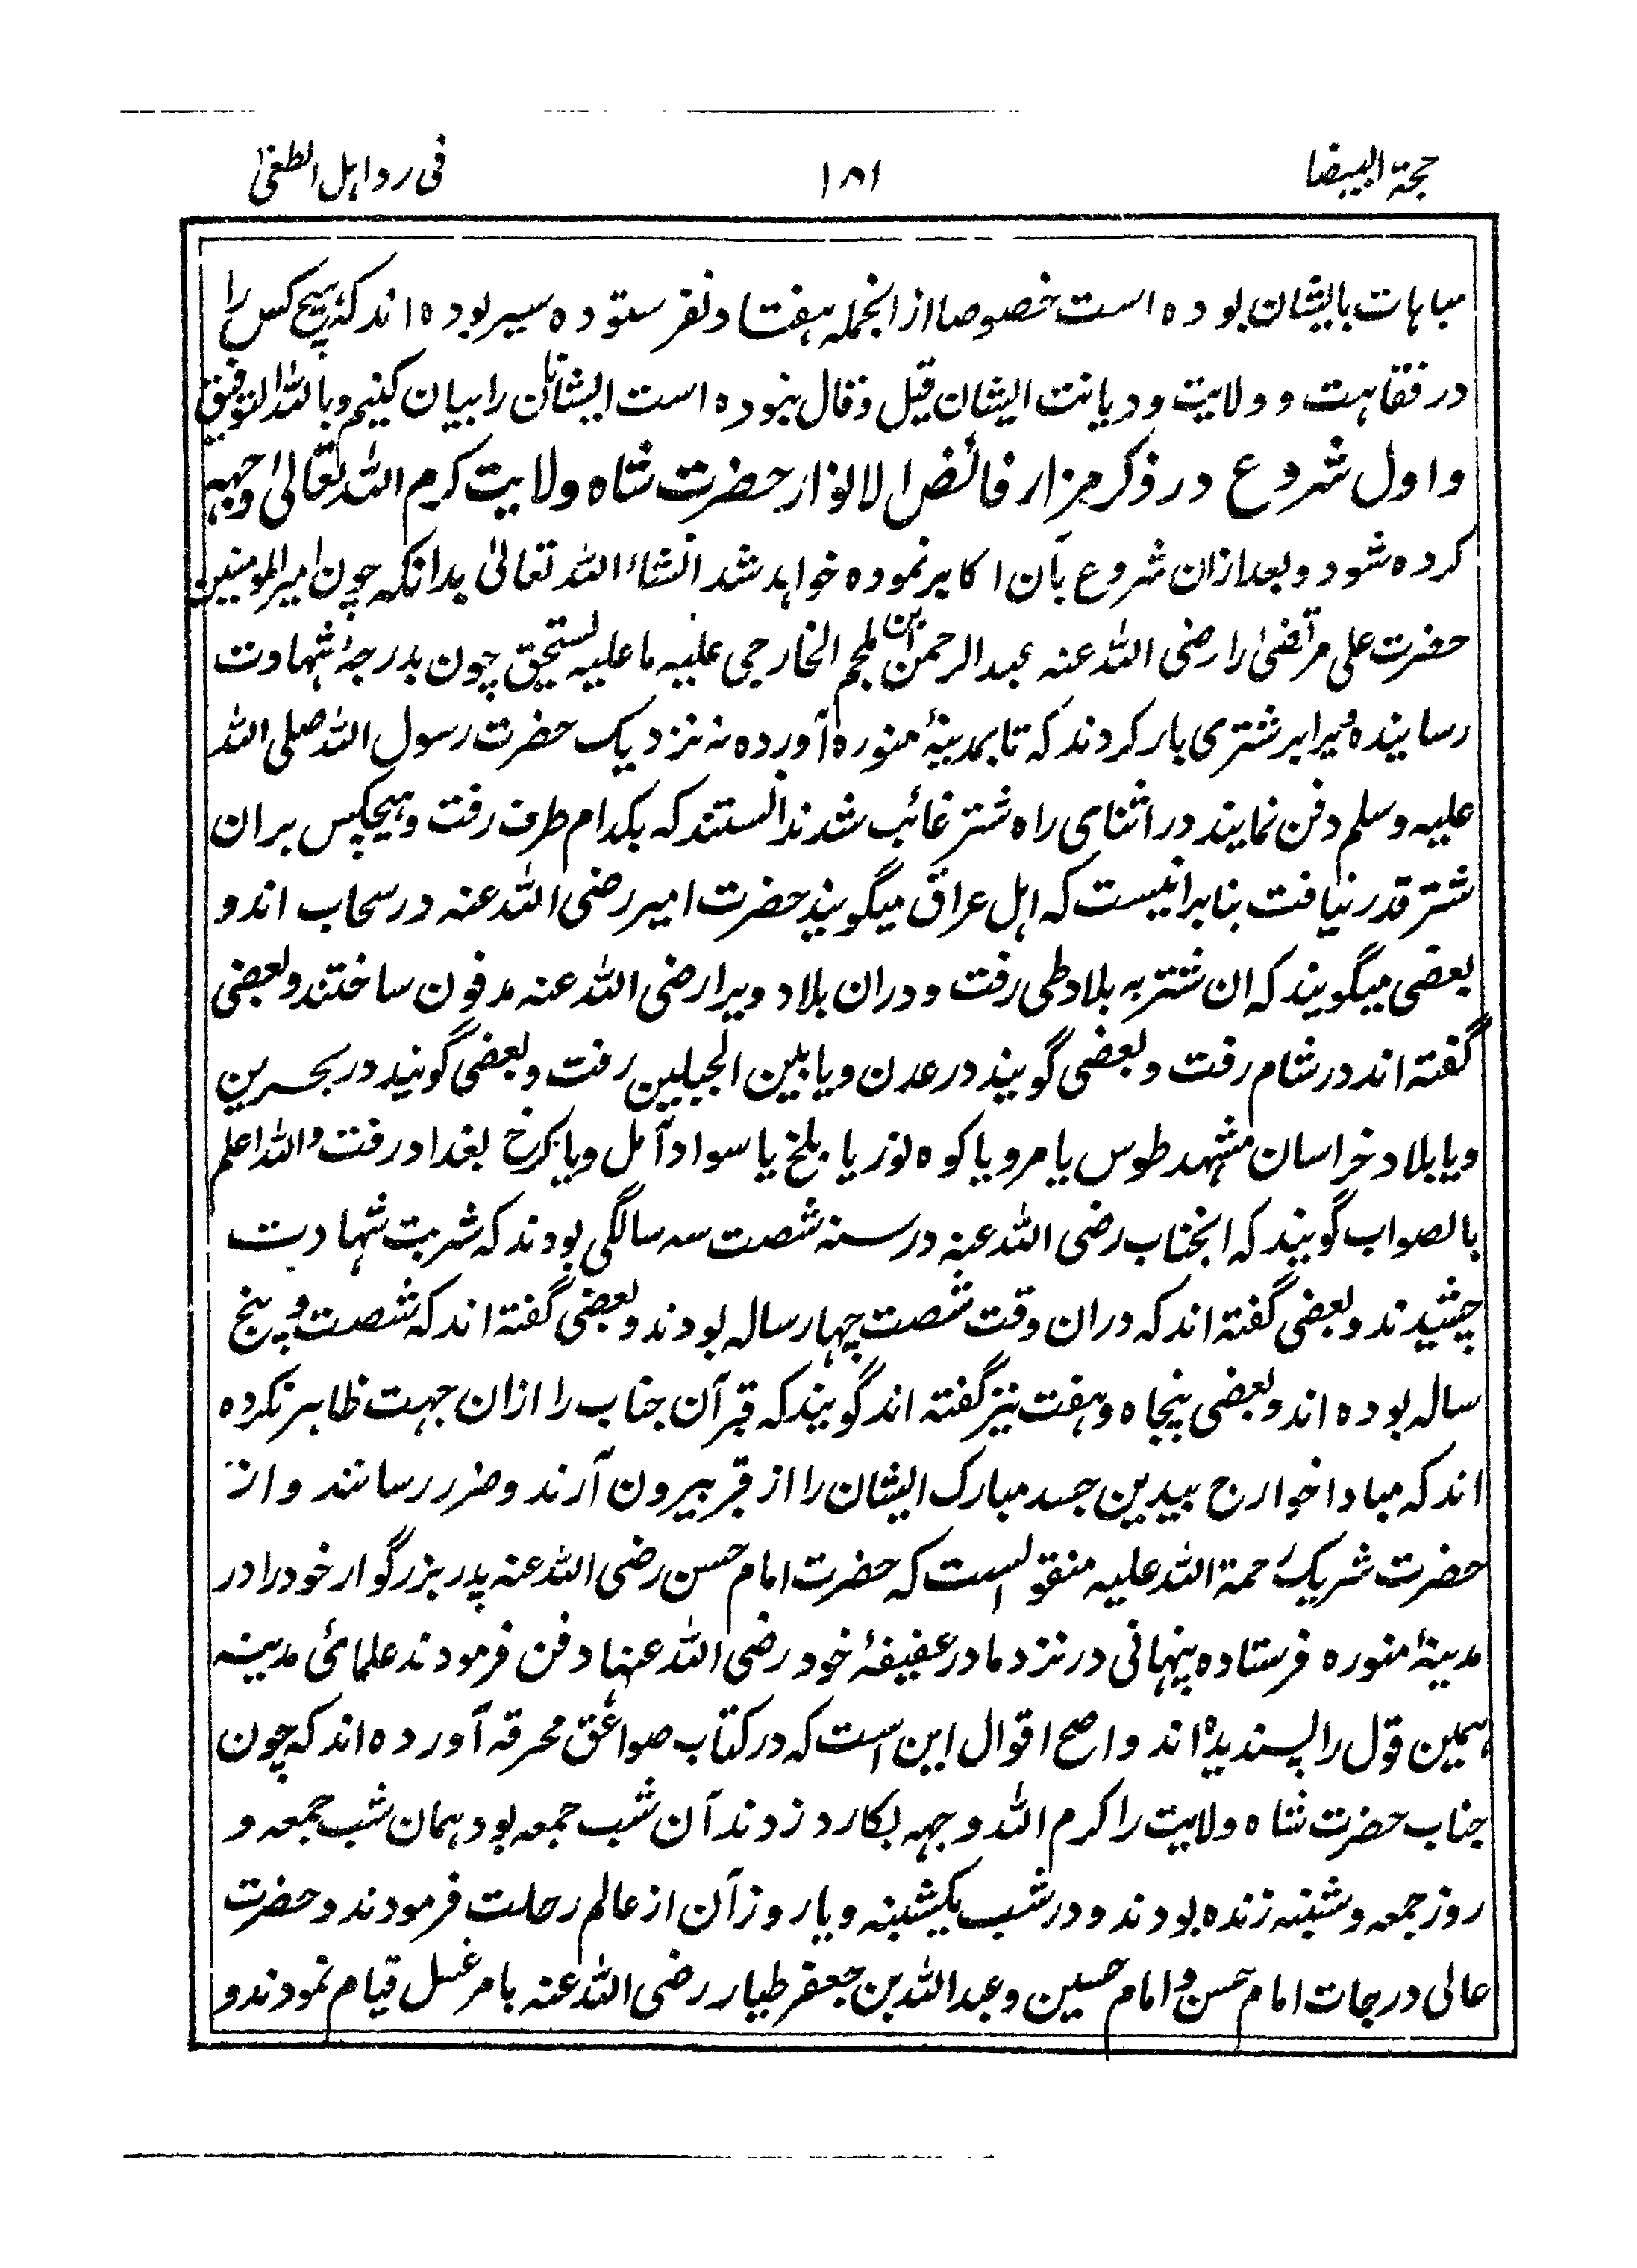 حجة البیضا ۱۵۱ فی رد اہل الطغیٰ
مباہات بایشان بوده است خصوصا از انجمله ہفتاد نفر ستوده سیر بوده اند کہ ہیچ کس را
در فقاہت و ولایت و دیانت ایشان قیل و قال نبوده است ایشان را بیان کنیم و باللہ التوفیق
و اول شروع در ذکر مزار فائض الانوار حضرت شاه ولایت کرم اللہ تعالیٰ وجہہ
کرده شود و بعد ازان شروع بآن اکابر نموده خواہد شد انشاء اللہ تعالیٰ بدانکہ چون امیر المومنین
حضرت علی مرتضیٰ را رضی اللہ عنہ عبد الرحمن ابن ملجم الخارجی علیہ ما علیہ لیستحق چون بدرجۂ شہادت
رسانیده ویرا بر شتری بار کردند کہ تا بمدینۂ منوره آورده نہ نزدیک حضرت رسول اللہ صلی اللہ
علیہ وسلم دفن نمایند در اثنای راه شتر غائب شد ندانستند کہ بکدام طرف رفت و ہیچکس بران
شتر قدر نیافت بنا برانیست کہ اہل عراق میگویند حضرت امیر رضی اللہ عنہ در سحاب اند و
بعضی میگویند کہ ان شتر بہ بلاد طی رفت و دران بلاد ویرا رضی اللہ عنہ مدفون ساختند و بعضی
گفتہ اند در شام رفت و بعضی گویند در عدن و یا بین الجبلین رفت و بعضی گویند در بحرین
و یا بلاد خراسان مشہد طوس یا مرو یا کوه نور یا بلخ یا سواد آمل و یا کرخ بغداد رفت واللہ اعلم
بالصواب گویند کہ انجناب رضی اللہ عنہ در سنہ شصت سہ سالگی بودند کہ شربت شہادت
چشیدند و بعضی گفتہ اند کہ دران وقت شصت چہار سالہ بودند و بعضی گفتہ اند کہ شصت و پنج
سالہ بوده اند و بعضی پنجاه و ہفت نیز گفتہ اند گویند کہ قبر آن جناب را ازان جہت ظاہر نکرده
اند کہ مبادا خوارج بیدین جسد مبارک ایشان را از قبر بیرون آرند و ضرر رسانند و از
حضرت شریک رحمۃ اللہ علیہ منقولست کہ حضرت امام حسن رضی اللہ عنہ پدر بزرگوار خود را در
مدینۂ منوره فرستاده پنہانی در نزد مادر عفیفۂ خود رضی اللہ عنہا دفن فرمودند علمائ مدینہ
ہمین قول را پسندیده اند و اصح اقوال این است کہ در کتاب صواعق محرقہ آورده اند کہ چون
جناب حضرت شاه ولایت را کرم اللہ وجہہ بکارد زدند آن شب جمعہ بود ہمان شب جمعہ و
روز جمعہ و شنبہ زنده بودند و در شب یکشنبہ و یا روز آن از عالم رحلت فرمودند و حضرت
عالی درجات امام حسن و امام حسین و عبد اللہ بن جعفر طیار رضی اللہ عنہ بامر غسل قیام نمودند و